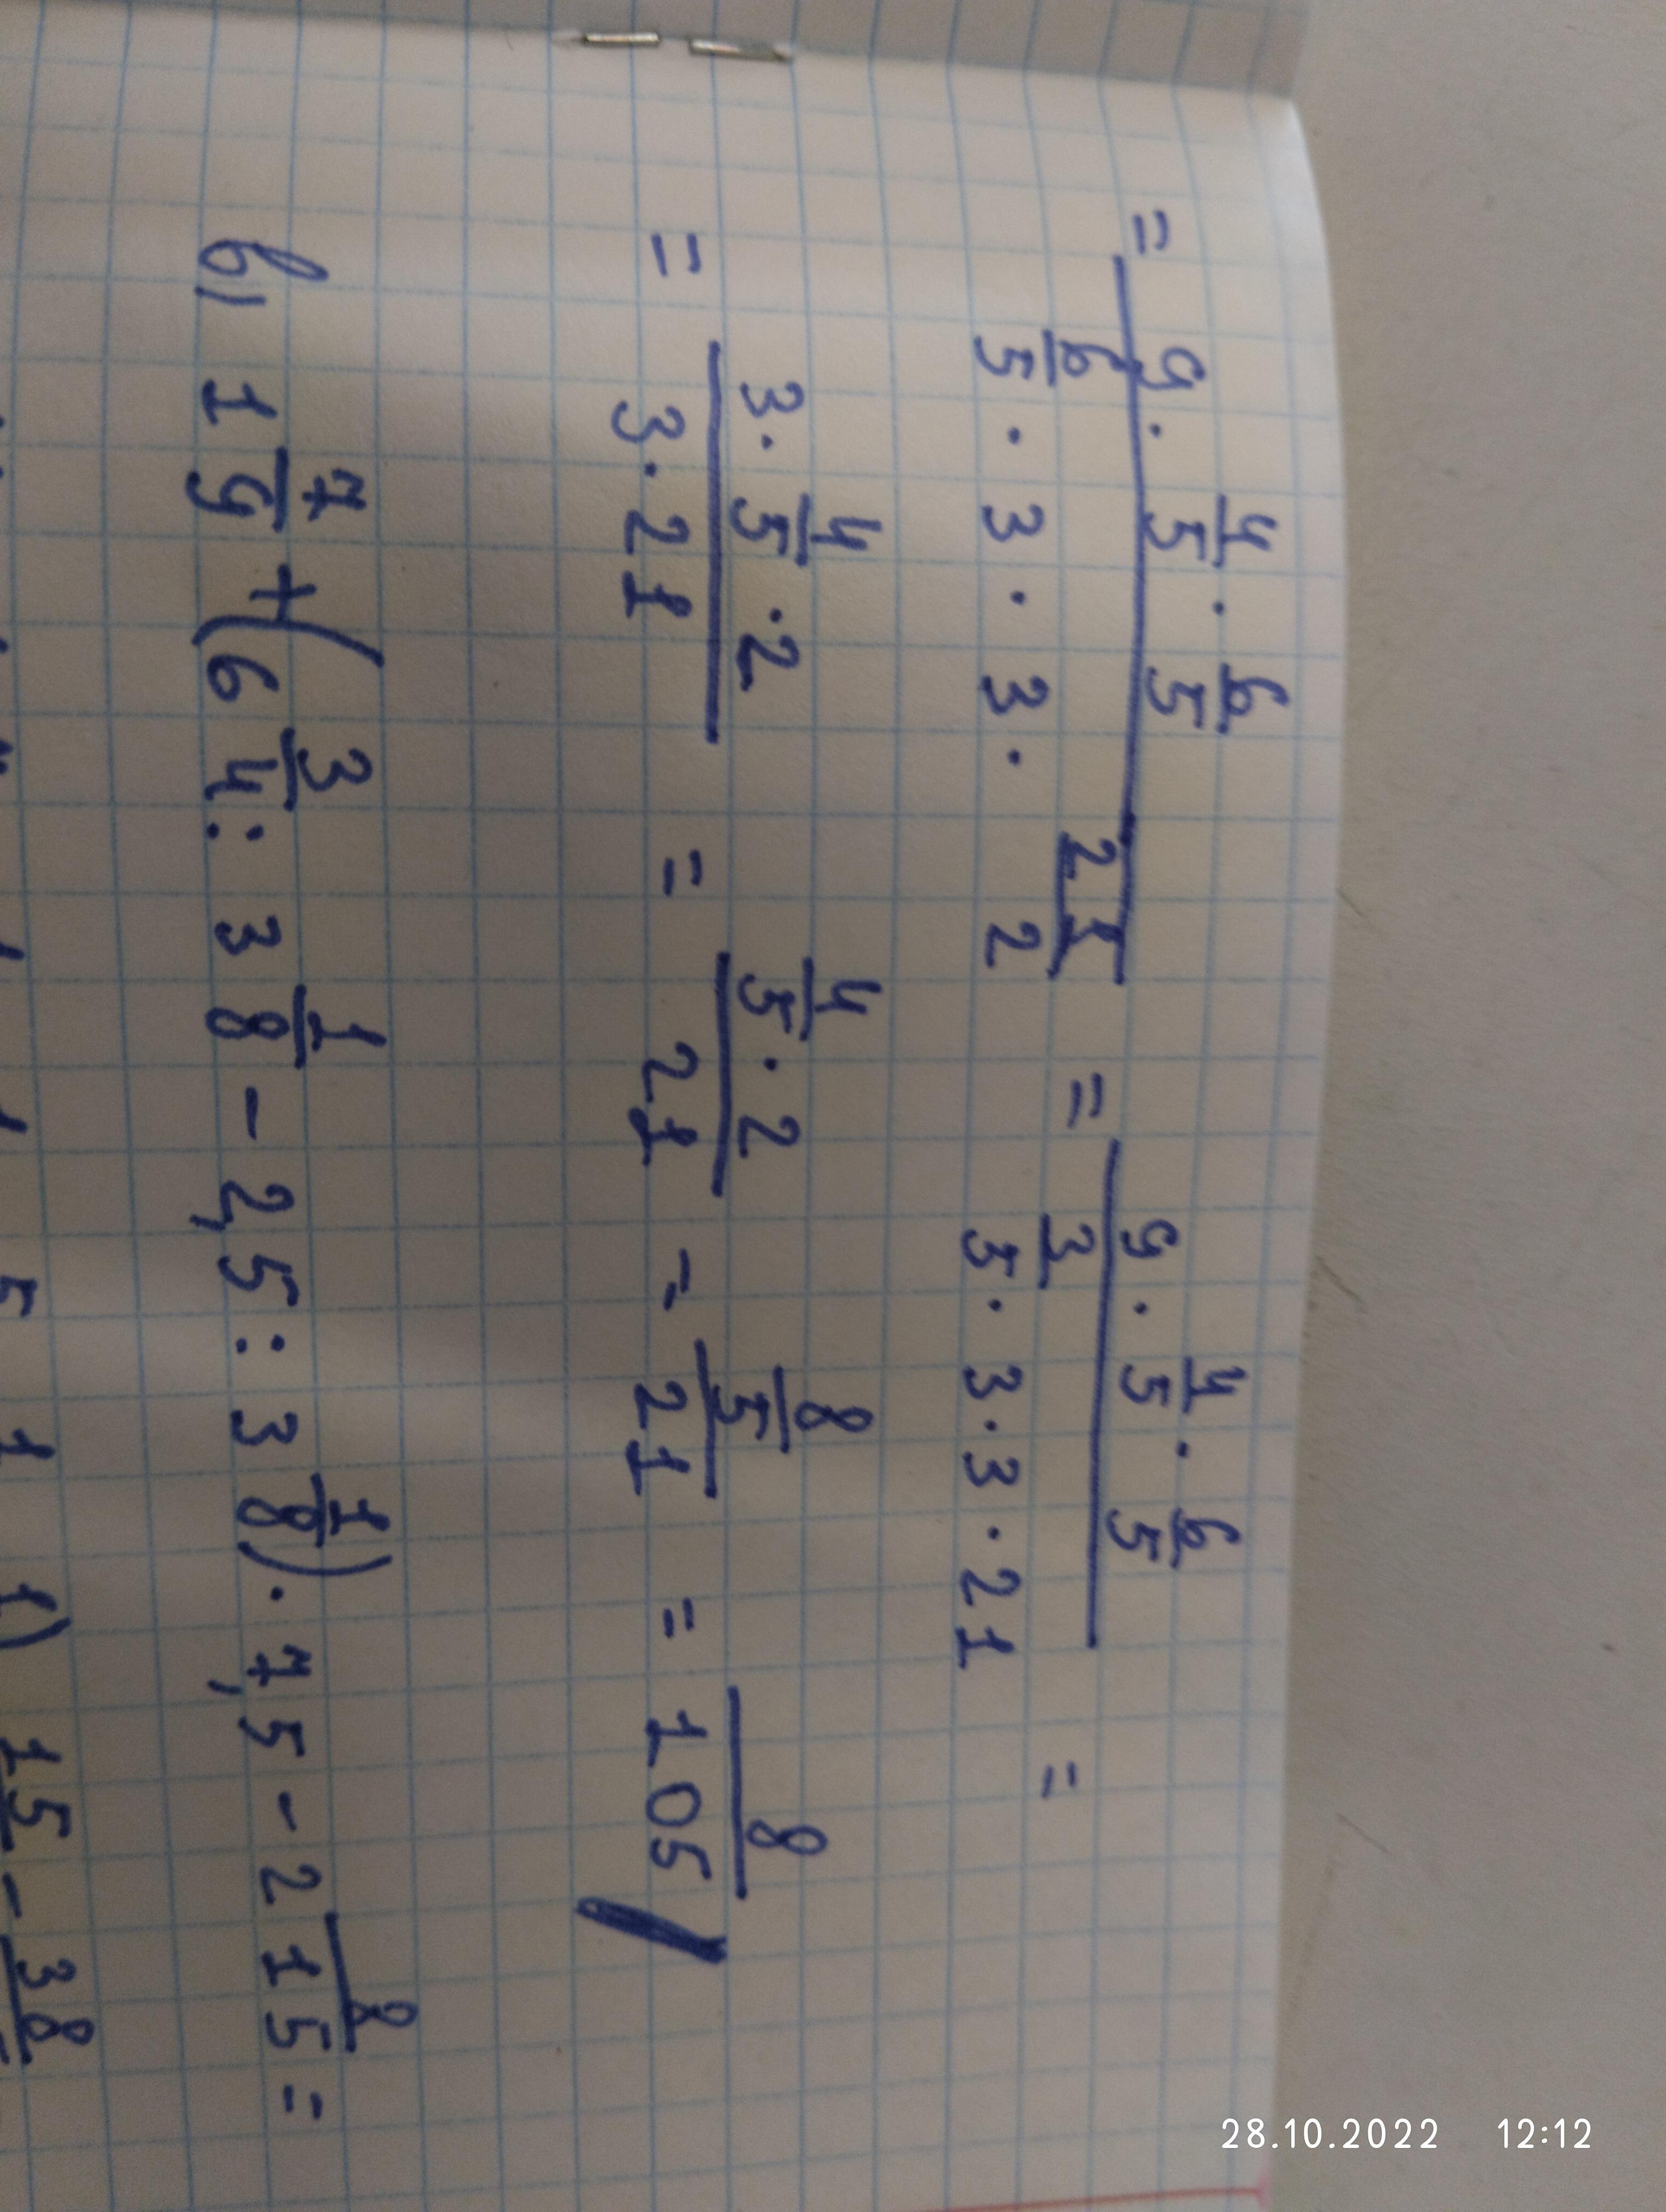 = (9 · 4/5 · 6/5) / (6/5 · 3 · 3 · 21/2) = (9 · 4/5 · 6/5) / (3/5 · 3 · 3 · 21) =
= (3 · 4/5 · 2) / (3 · 21) = (4/5 · 2) / 21 = (8/5) / 21 = 8/105
в) 1 7/9 + (6 3/4 : 3 1/8 - 2,5 : 3 1/8) · 7,5 - 2 8/15 =
28.10.2022 12:12